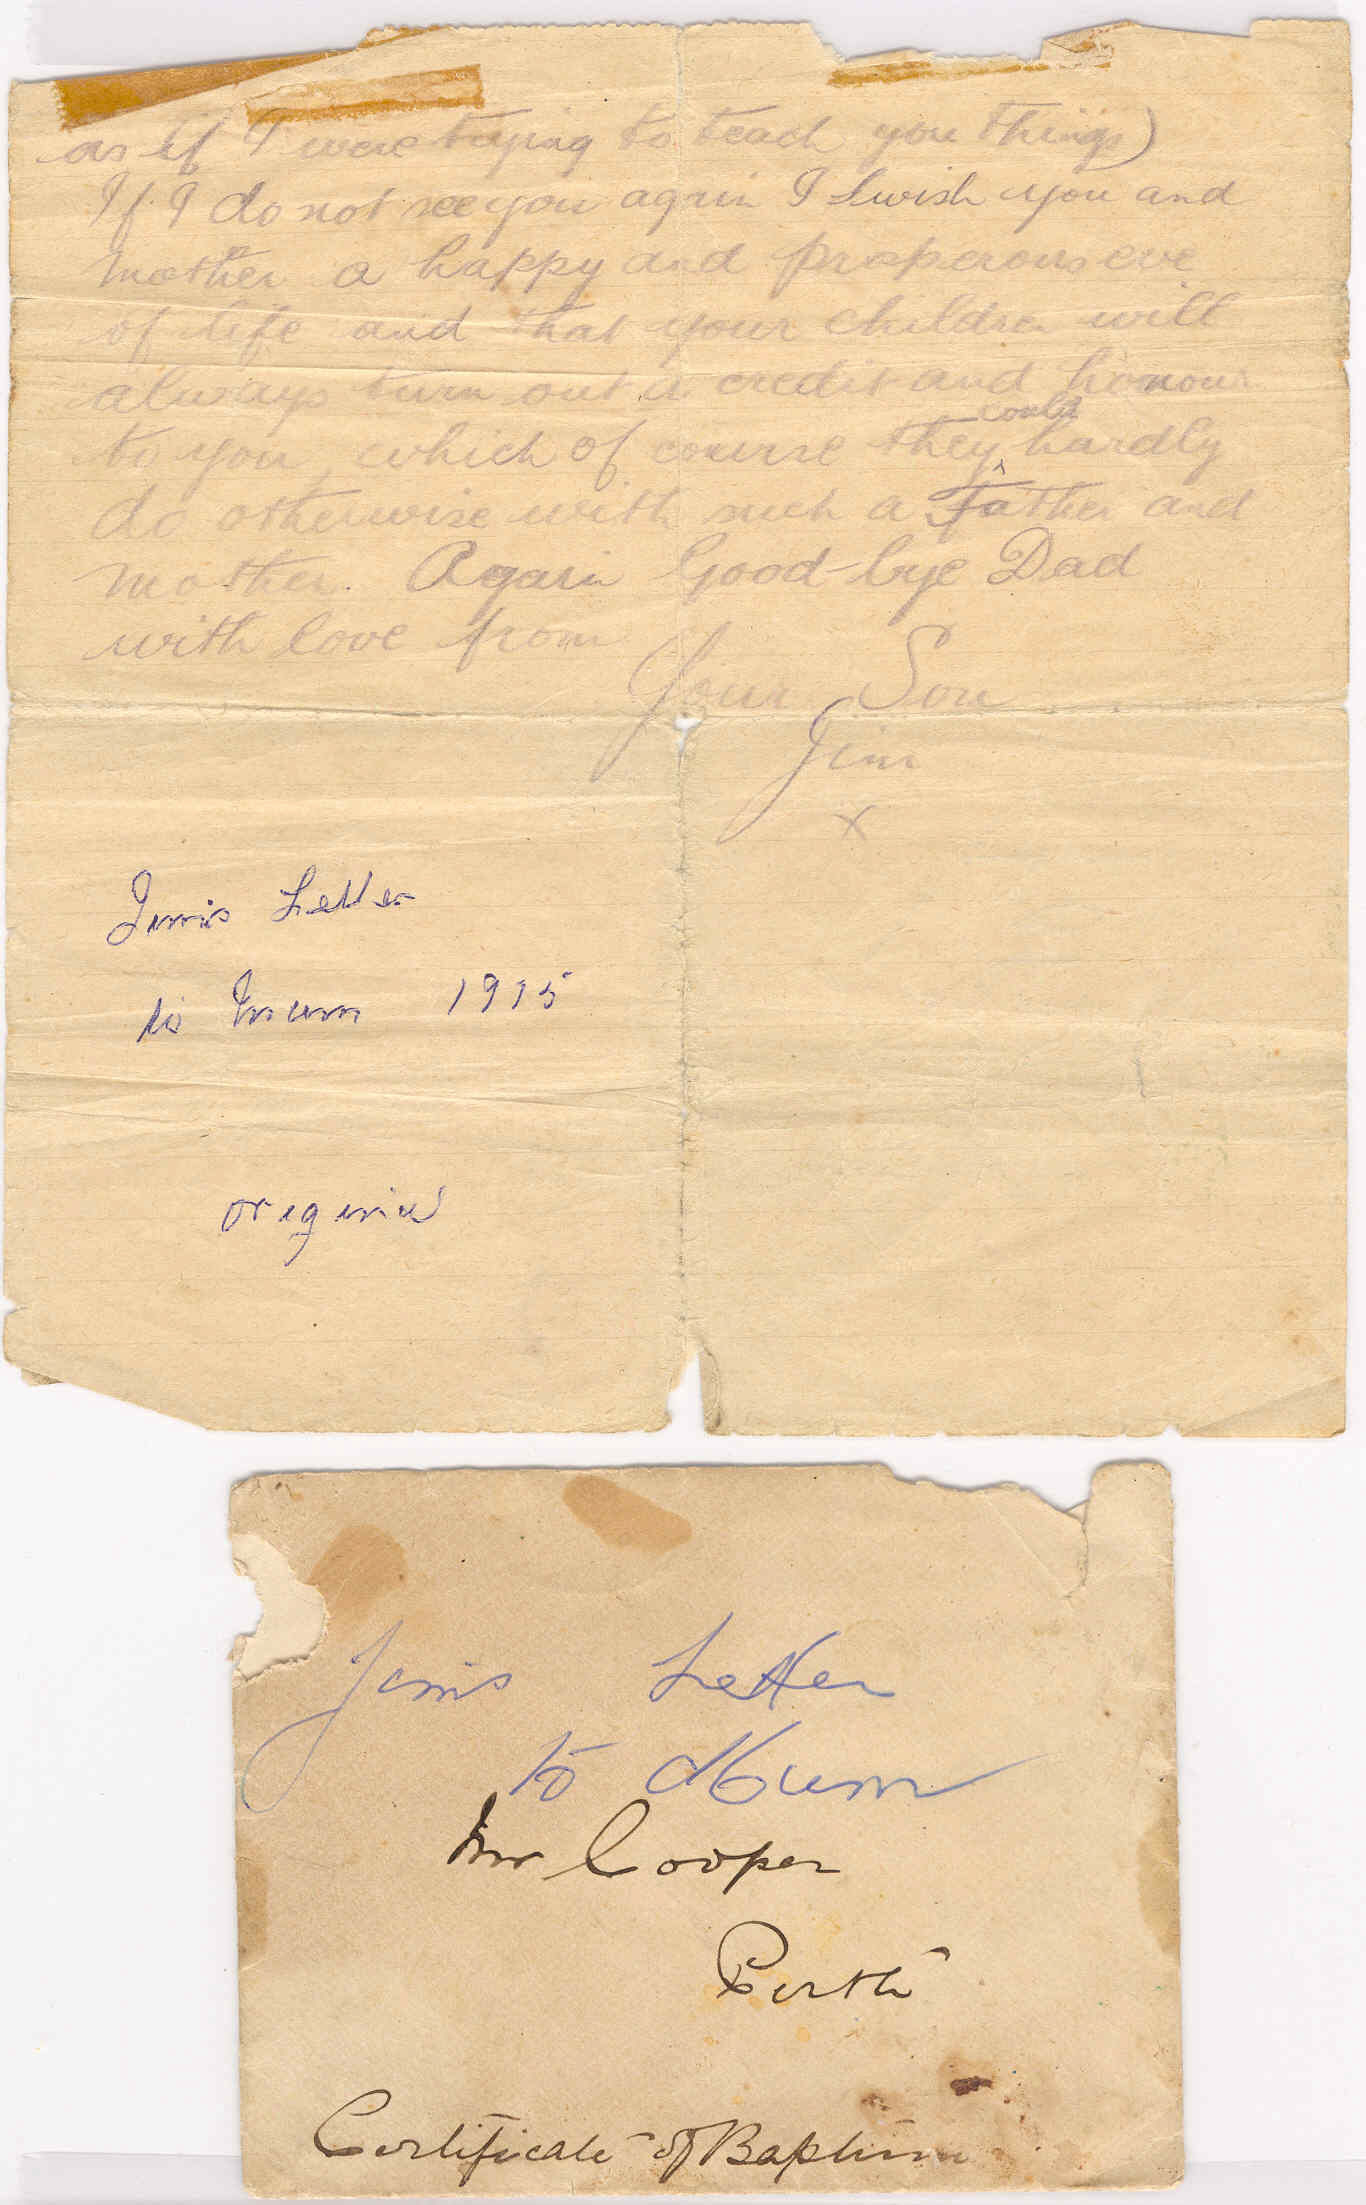 as if I were trying to teach you things)
If I do not see you again I wish you and
mother a happy and prosperous eve
of life and that your children will
always turn out a credit and honour
to you, which of course they could hardly
do otherwise with such a Father and
mother. Again Good-bye Dad
with love from
Your Son
Jim
x
Jim's Letter
to Mum 1915
original
Jim's Letter
to Mum
Mr Cooper
Perth
Certificate of Baptism